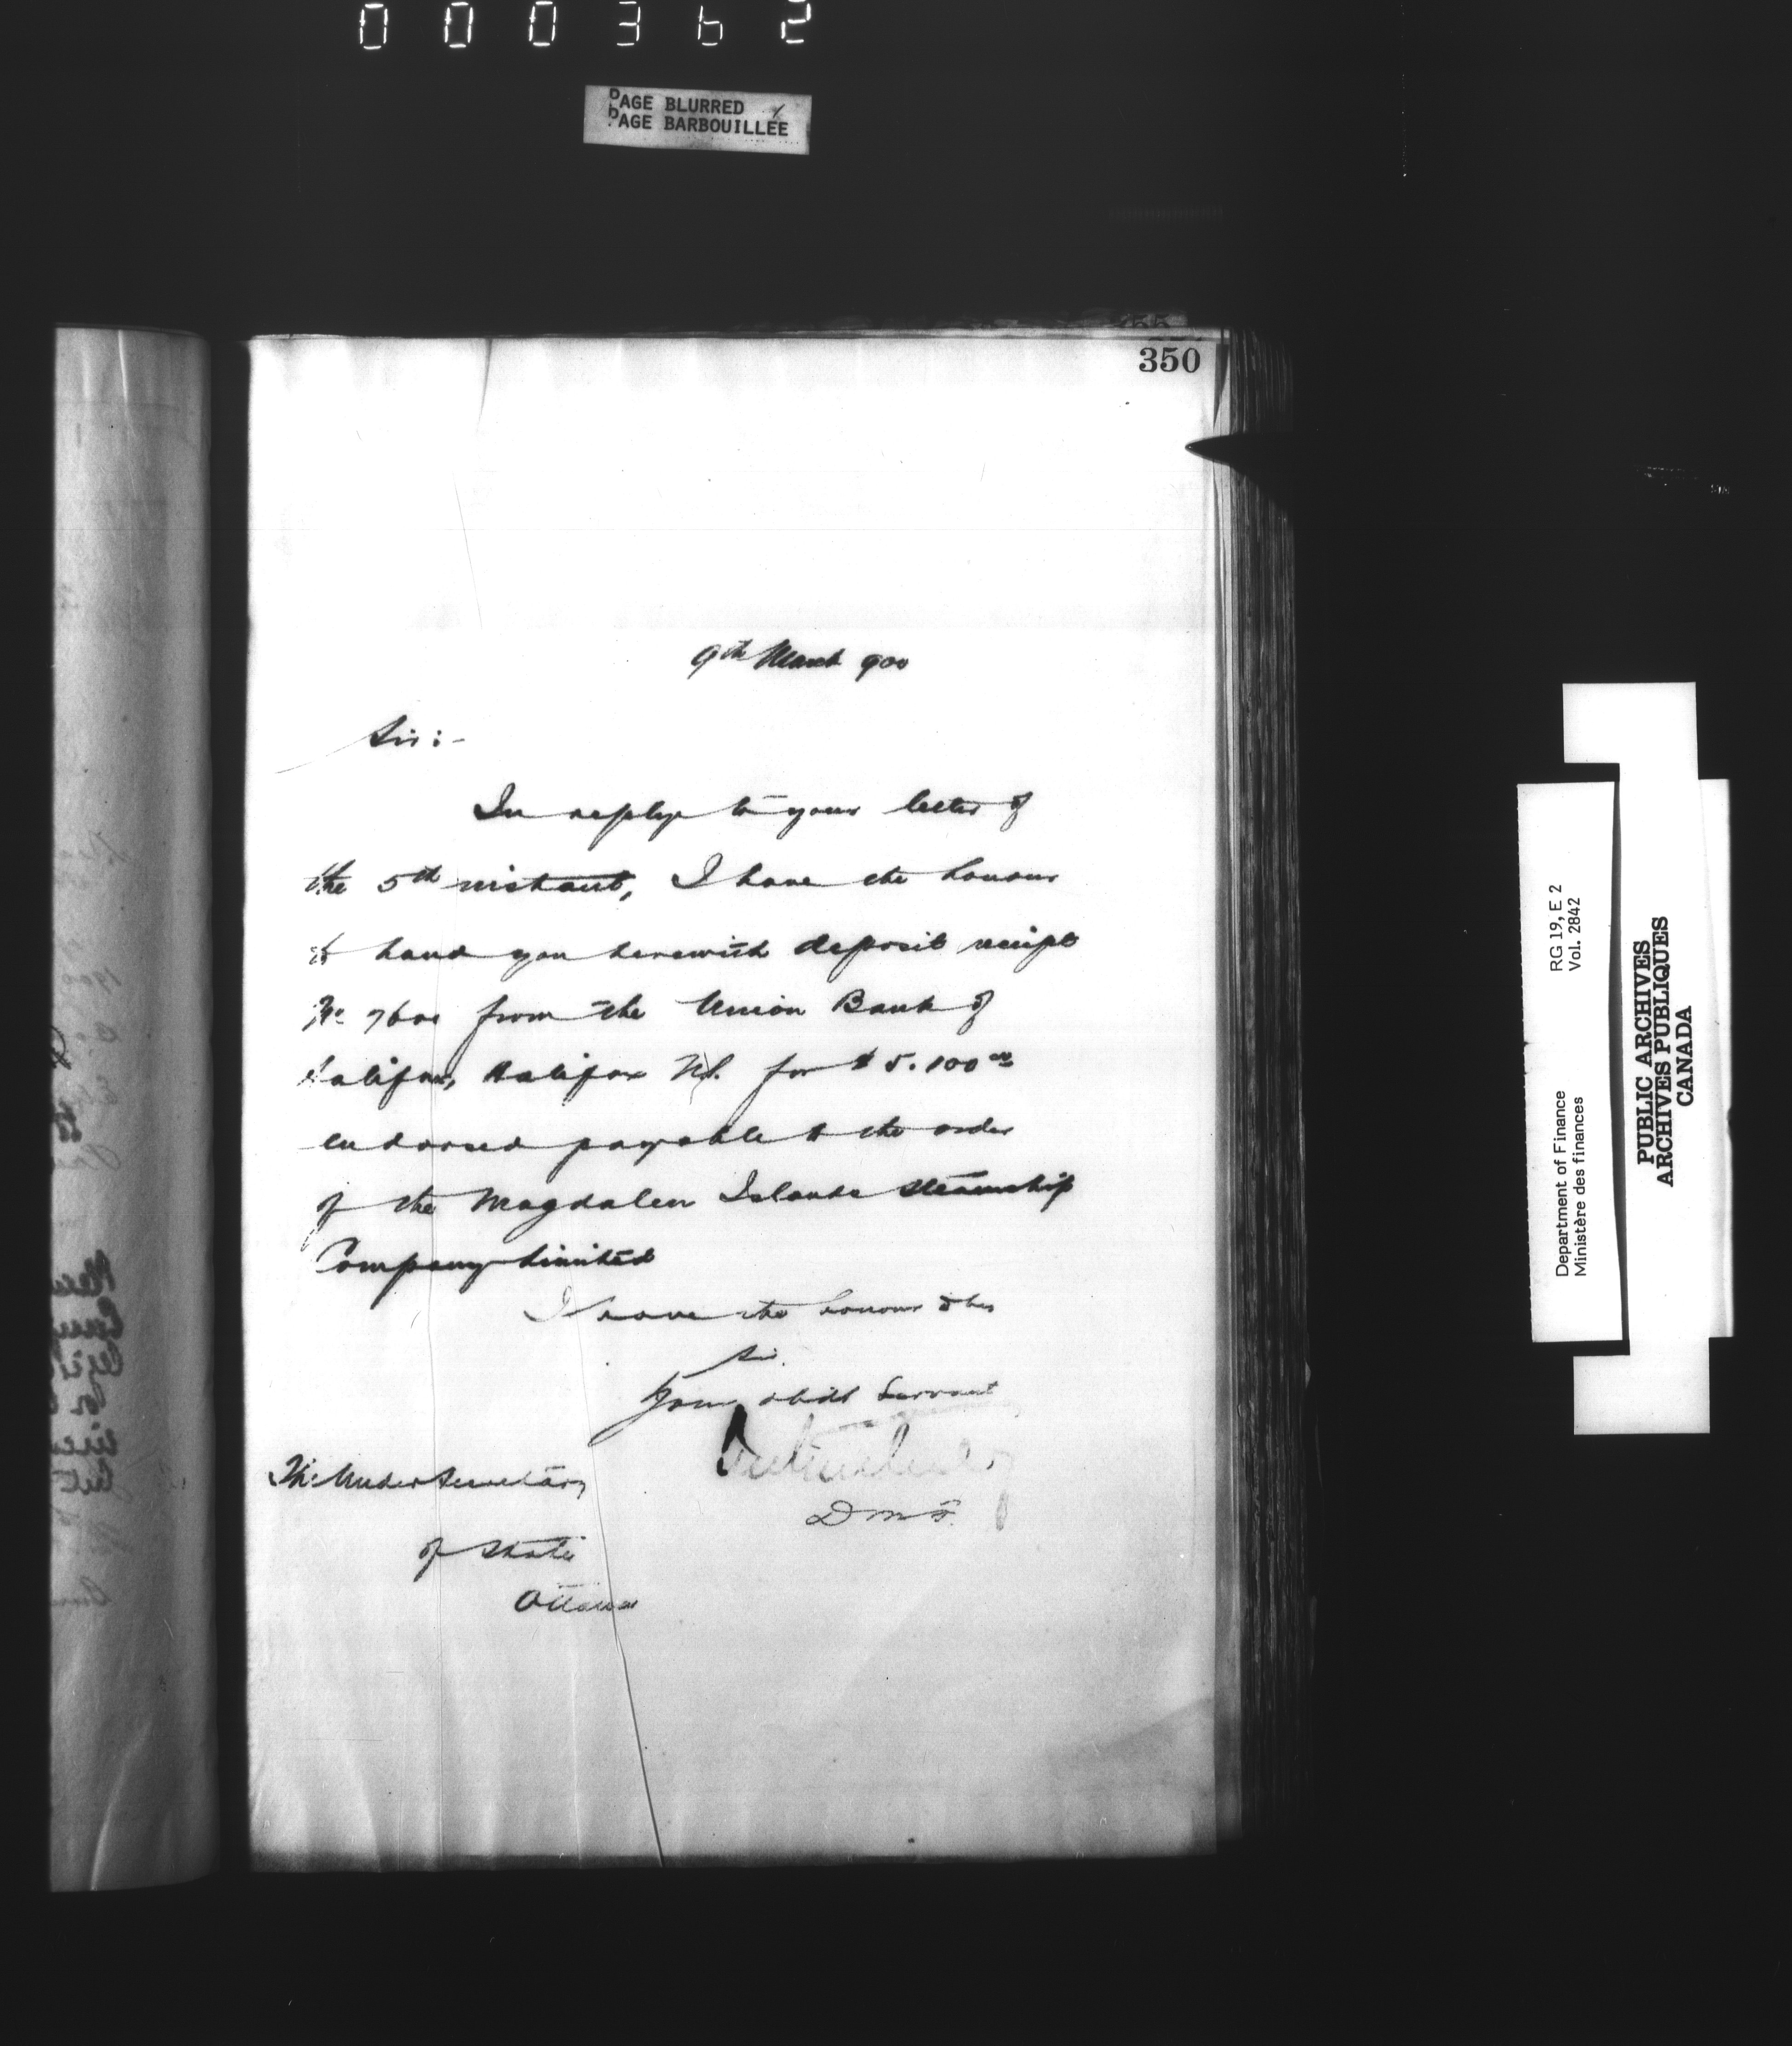 000362
PAGE BLURRED
PAGE BARBOUILLÉE
350
9th March 900
Sir:-
In reply to your letter of
the 5th instant, I have the honour
to hand you herewith deposit receipt
No from the Union Bank of
Halifax, Halifax N.S. for $5.100 00
endorsed payable to the order
of the Magdalen Islands Steamship
Company Limited
I have the honour to be
Sir.
Your obdt Servant
D M F.
The Under Secretary
of State
Ottawa
RG 19, E 2
Vol. 2842
Department of Finance
Ministère des finances
PUBLIC ARCHIVES
ARCHIVES PUBLIQUES
CANADA